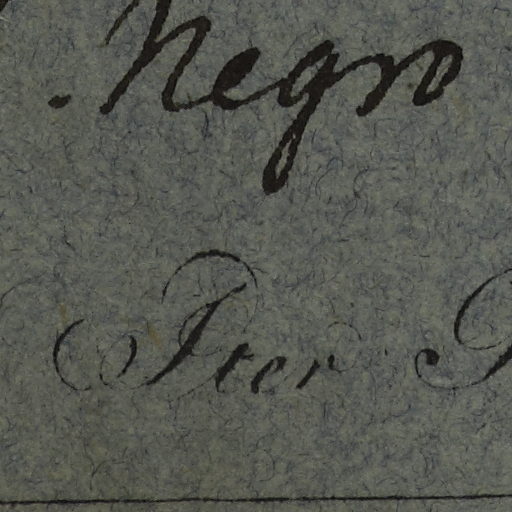 Negro
Iter